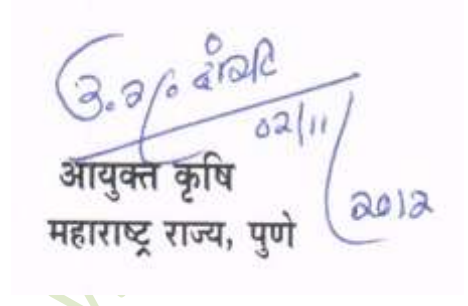 02/11/
2012
आयुक्त कृषि
महाराष्ट्र राज्य, पुणे